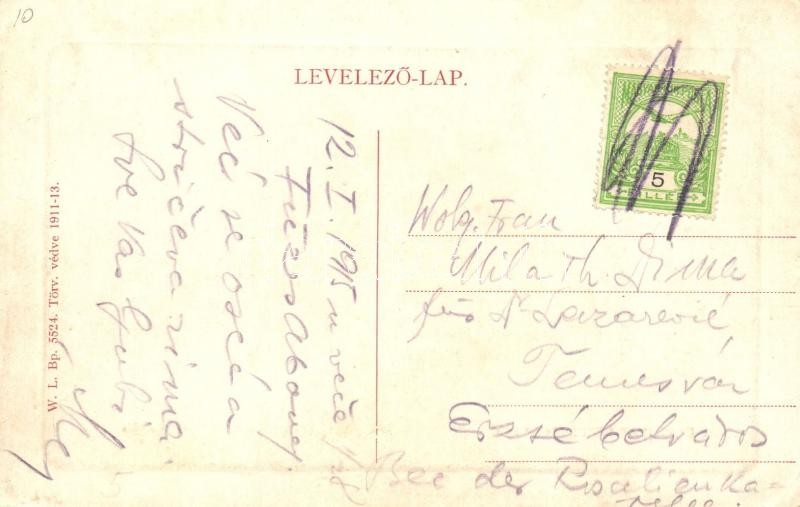 10
LEVELEZŐ-LAP.
5
W. L. Bp. 5524. Törv. védve 1911-13.
12. I. 1915 u veče
Već se oseća
strićeva zima.
Sve Vas ljubi
Wolg. Frau
Mila Th. Dima
für Dr Lazarević
Temesvár
Erzsébetváros
Bei der Rosalienka-